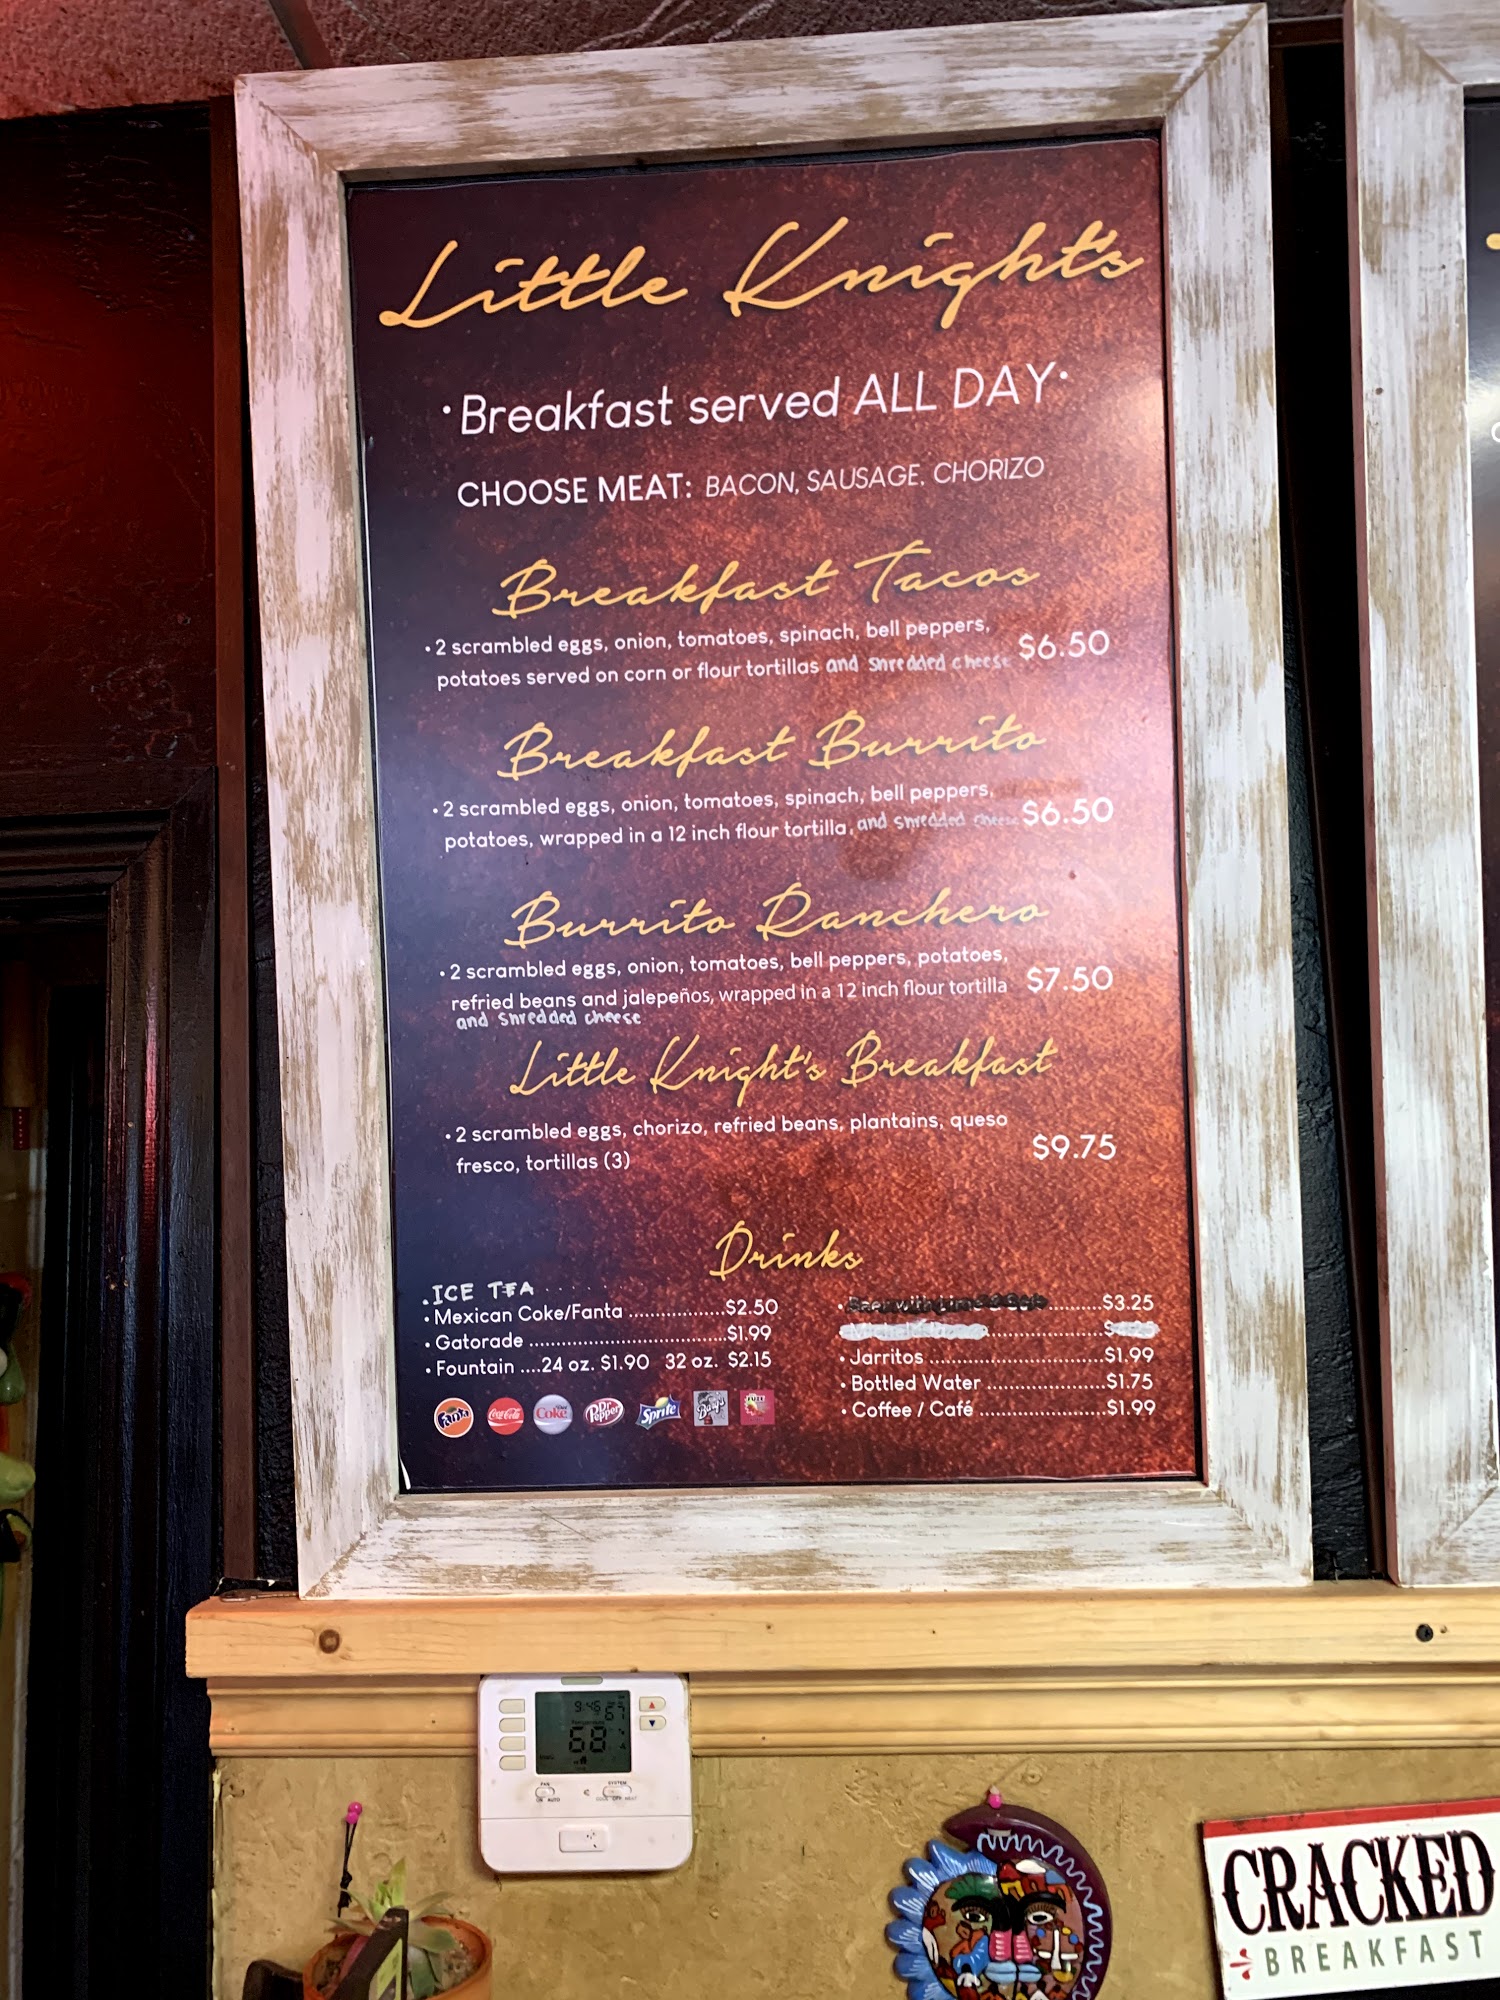 Little Knight's
• Breakfast served ALL DAY •
CHOOSE MEAT: BACON, SAUSAGE. CHORIZO
Breakfast Tacos
• 2 scrambled eggs, onion, tomatoes, spinach, bell peppers,
potatoes served on corn or flour tortillas and shredded cheese $6.50
Breakfast Burrito
• 2 scrambled eggs, onion, tomatoes, spinach, bell peppers,
potatoes, wrapped in a 12 inch flour tortilla, and shredded cheese $6.50
Burrito Ranchero
• 2 scrambled eggs, onion, tomatoes, bell peppers, potatoes,
refried beans and jalepeños, wrapped in a 12 inch flour tortilla $7.50
and shredded cheese
Little Knight's Breakfast
• 2 scrambled eggs, chorizo, refried beans, plantains, queso
fresco, tortillas (3) $9.75
Drinks
. ICE TEA
• Mexican Coke/Fanta ..................$2.50
• Gatorade ......................................$1.99
• Fountain ....24 oz. $1.90 32 oz. $2.15
Fanta Coca-Cola Coke Dr Pepper Sprite Barq's FUZE
..........$3.25
• Jarritos ................................$1.99
• Bottled Water ......................$1.75
• Coffee / Café .......................$1.99
9:45 67
68
FAN
ON AUTO
SYSTEM
COOL OFF HEAT
CRACKED
BREAKFAST